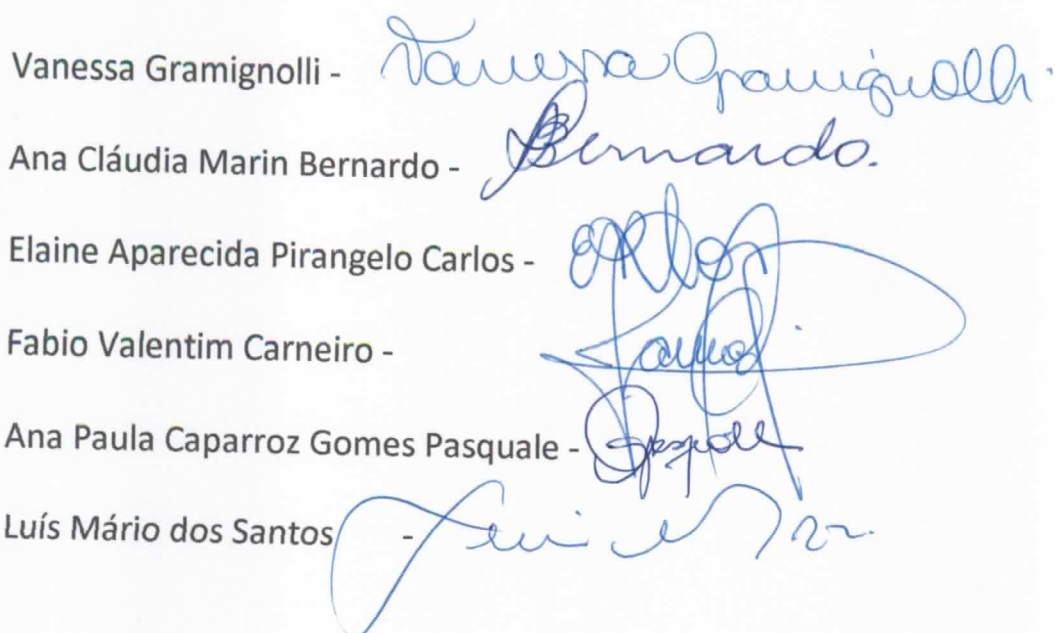 Vanessa Gramignolli - Vanessa Gramignolli
Ana Cláudia Marin Bernardo - Bernardo.
Elaine Aparecida Pirangelo Carlos -
Fabio Valentim Carneiro -
Ana Paula Caparroz Gomes Pasquale -
Luís Mário dos Santos -